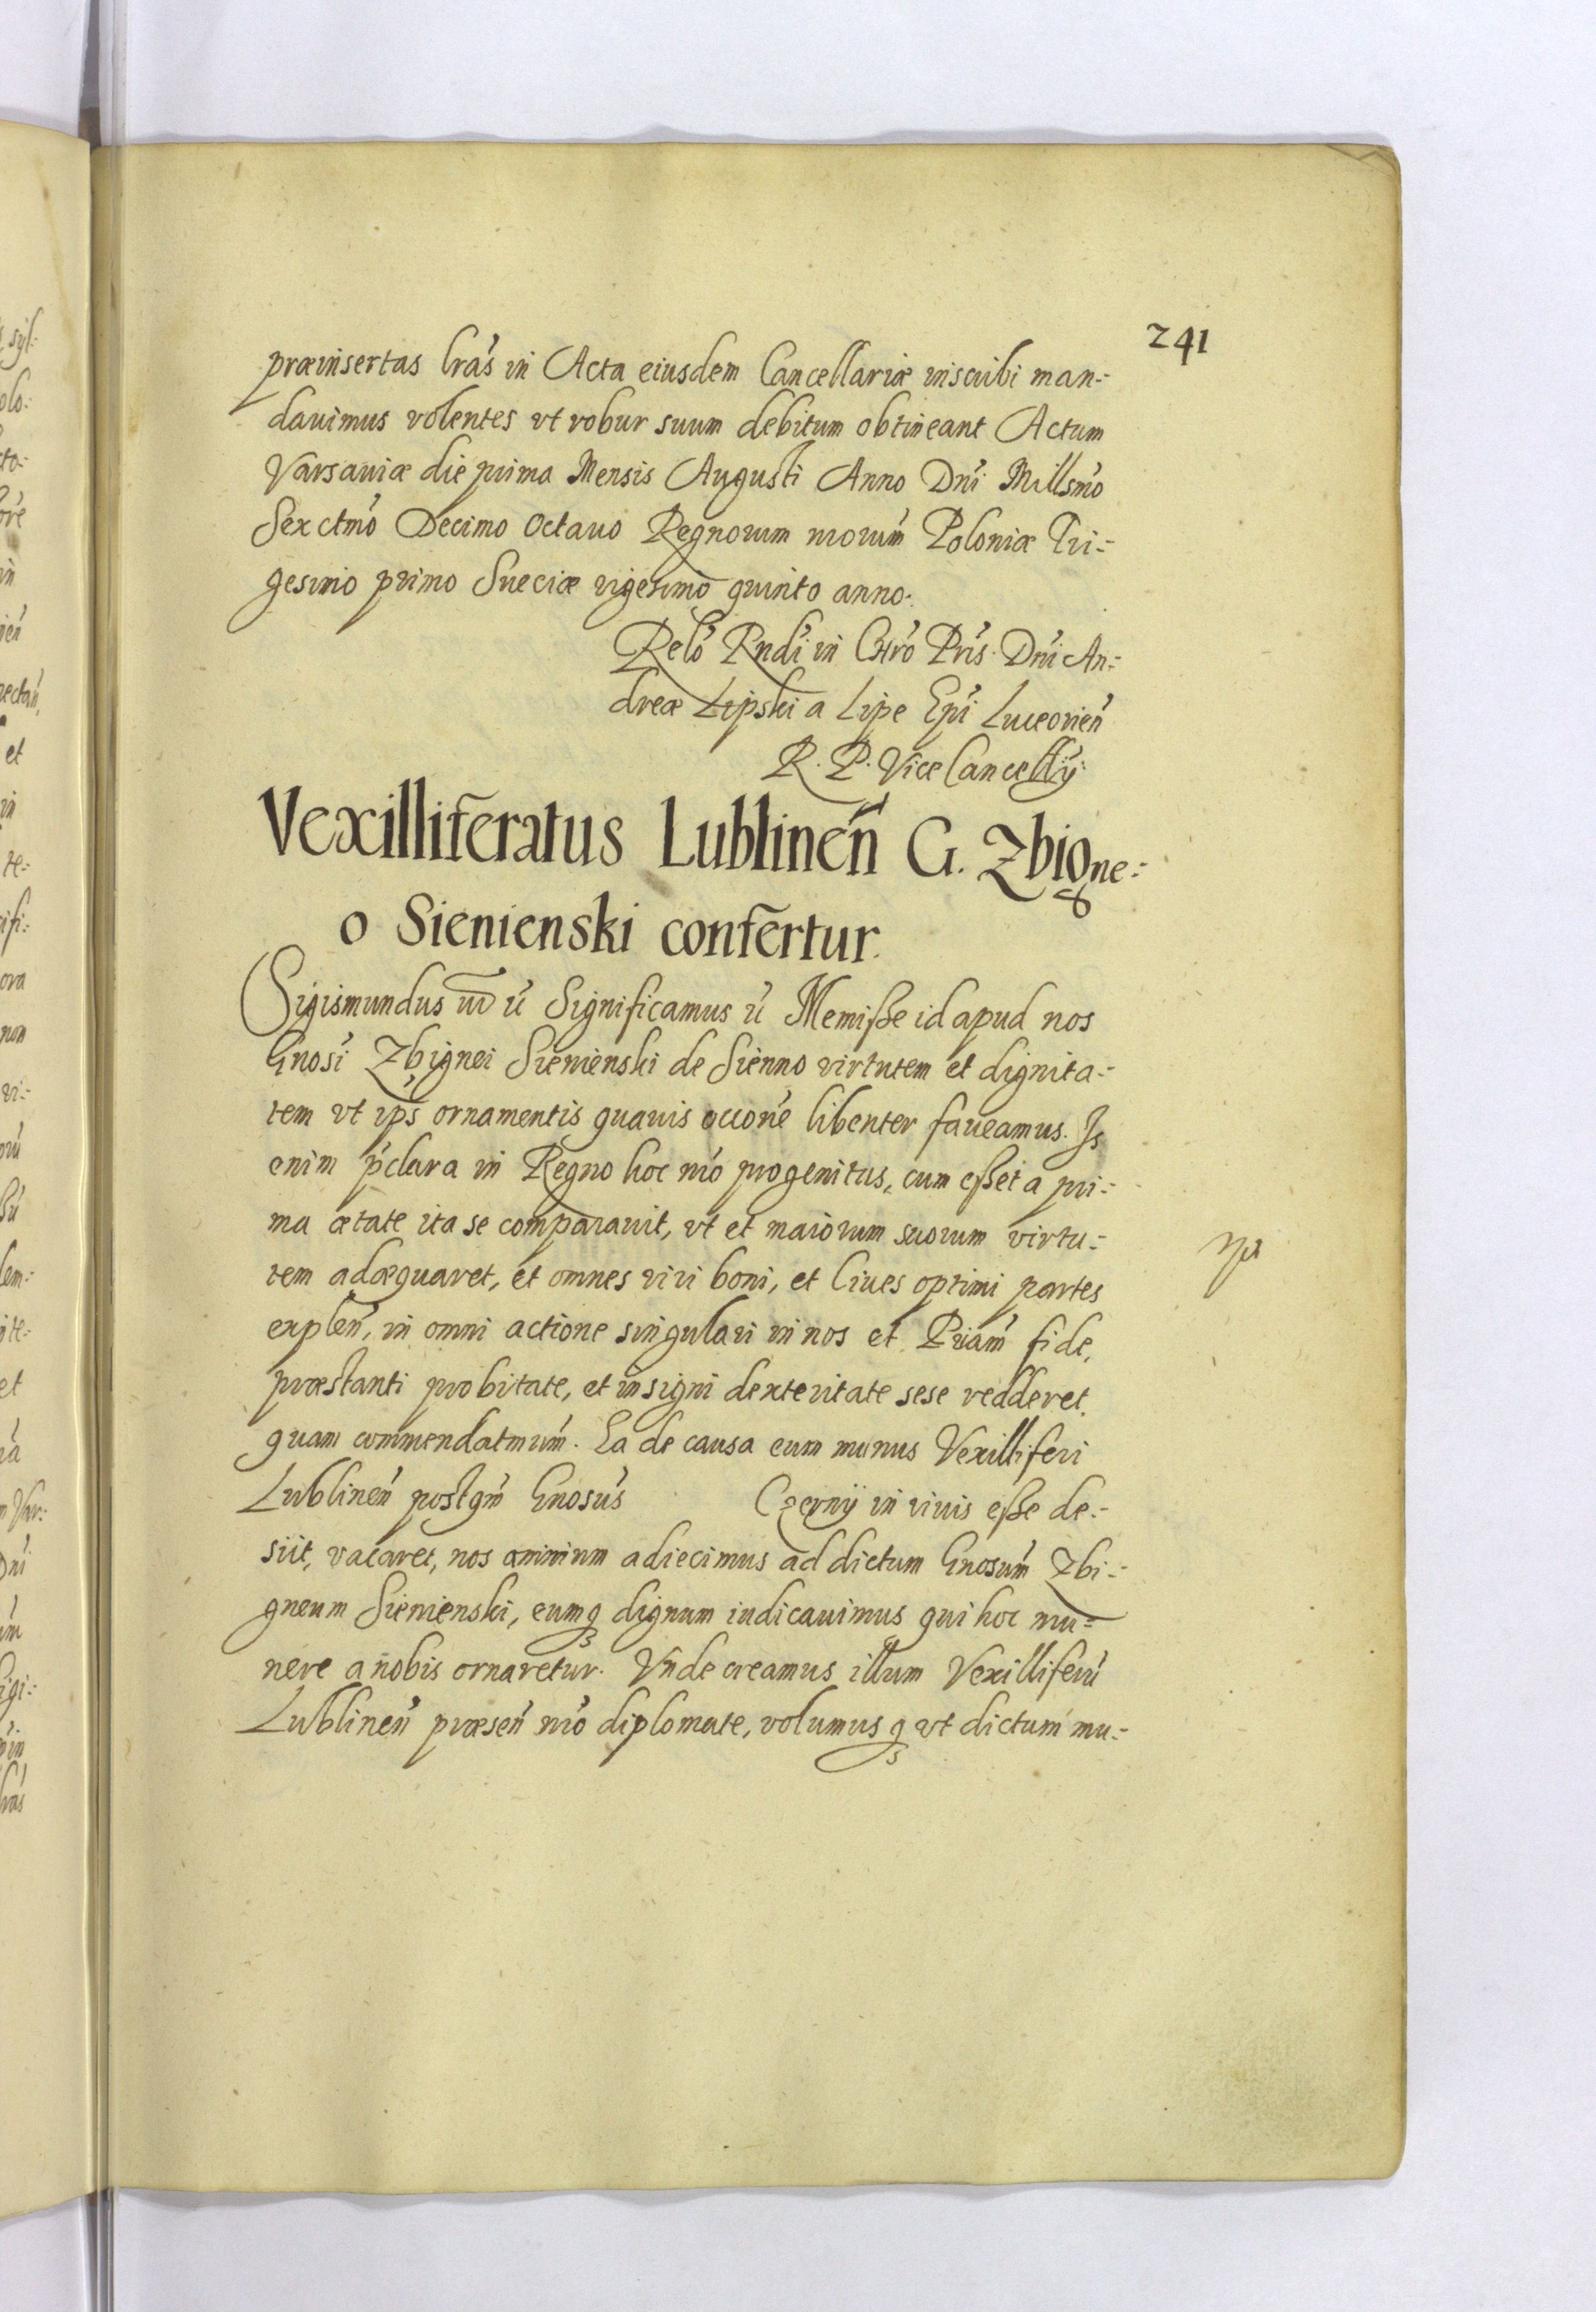 241
præinsertas lrás in Acta eiusdem Cancellariæ inscribi man-
dauimus volentes vt robur suum debitum obtineant Actum
Varsauiæ die prima Mensis Augusti Anno Dni Millsmo
Sexctmo Decimo Octauo Regnorum nrorum Poloniæ Tri-
gesimo primo Sueciæ vigesimo quinto anno.
Relo Rndi in Chro Pris Dni An-
dreæ Lipski a Lipe Epi Luceorien
R. P. ViceCancellÿ
Vexilliferatus Lublinen G. Zbigne-
o Sienienski confertur.
Sigismundus Significamus Meruisse id apud nos
Gnosi Zbignei Sienienski de Sienno virtutem et dignita-
tem vt ips ornamentis quauis occone libenter faueamus. Is
enim pclara in Regno hoc nro progenitus, cum esset a pri-
ma ætate ita se comparauit, vt et maiorum suorum virtu-
tem adæquaret, et omnes viri boni, et Ciues optimi partes
explen, in omni actione singulari in nos et Priam fide,
præstanti probitate, et insigni dexteritate sese redderet
quam commendatmum. Ea de causa cum munus Vexilliferi
Lublinen postqm Gnosus Czernÿ in viuis esse de-
siit, vacaret, nos animum adiecimus ad dictum Gnosum Zbi-
gneum Sienienski, eumq dignum iudicauimus qui hoc mu-
nere a nobis ornaretur. Vnde creamus illum Vexilliferu
Lublinen præsen nro diplomate, volumusq vt dictum mu-